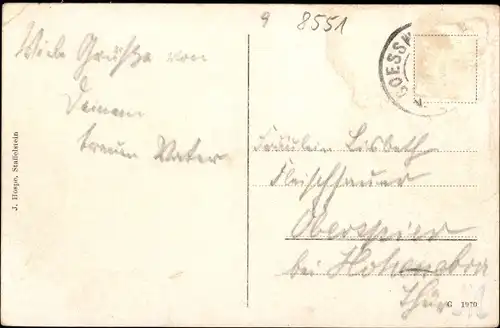 9 8551
Viele Grüße von
Deinem
treuen Vater
GOESSN
Fräulein Lisbeth
Fleischhauer
Oberspier
bei Hohenebra
Thür
J. Hospe, Staffelstein
G 1970